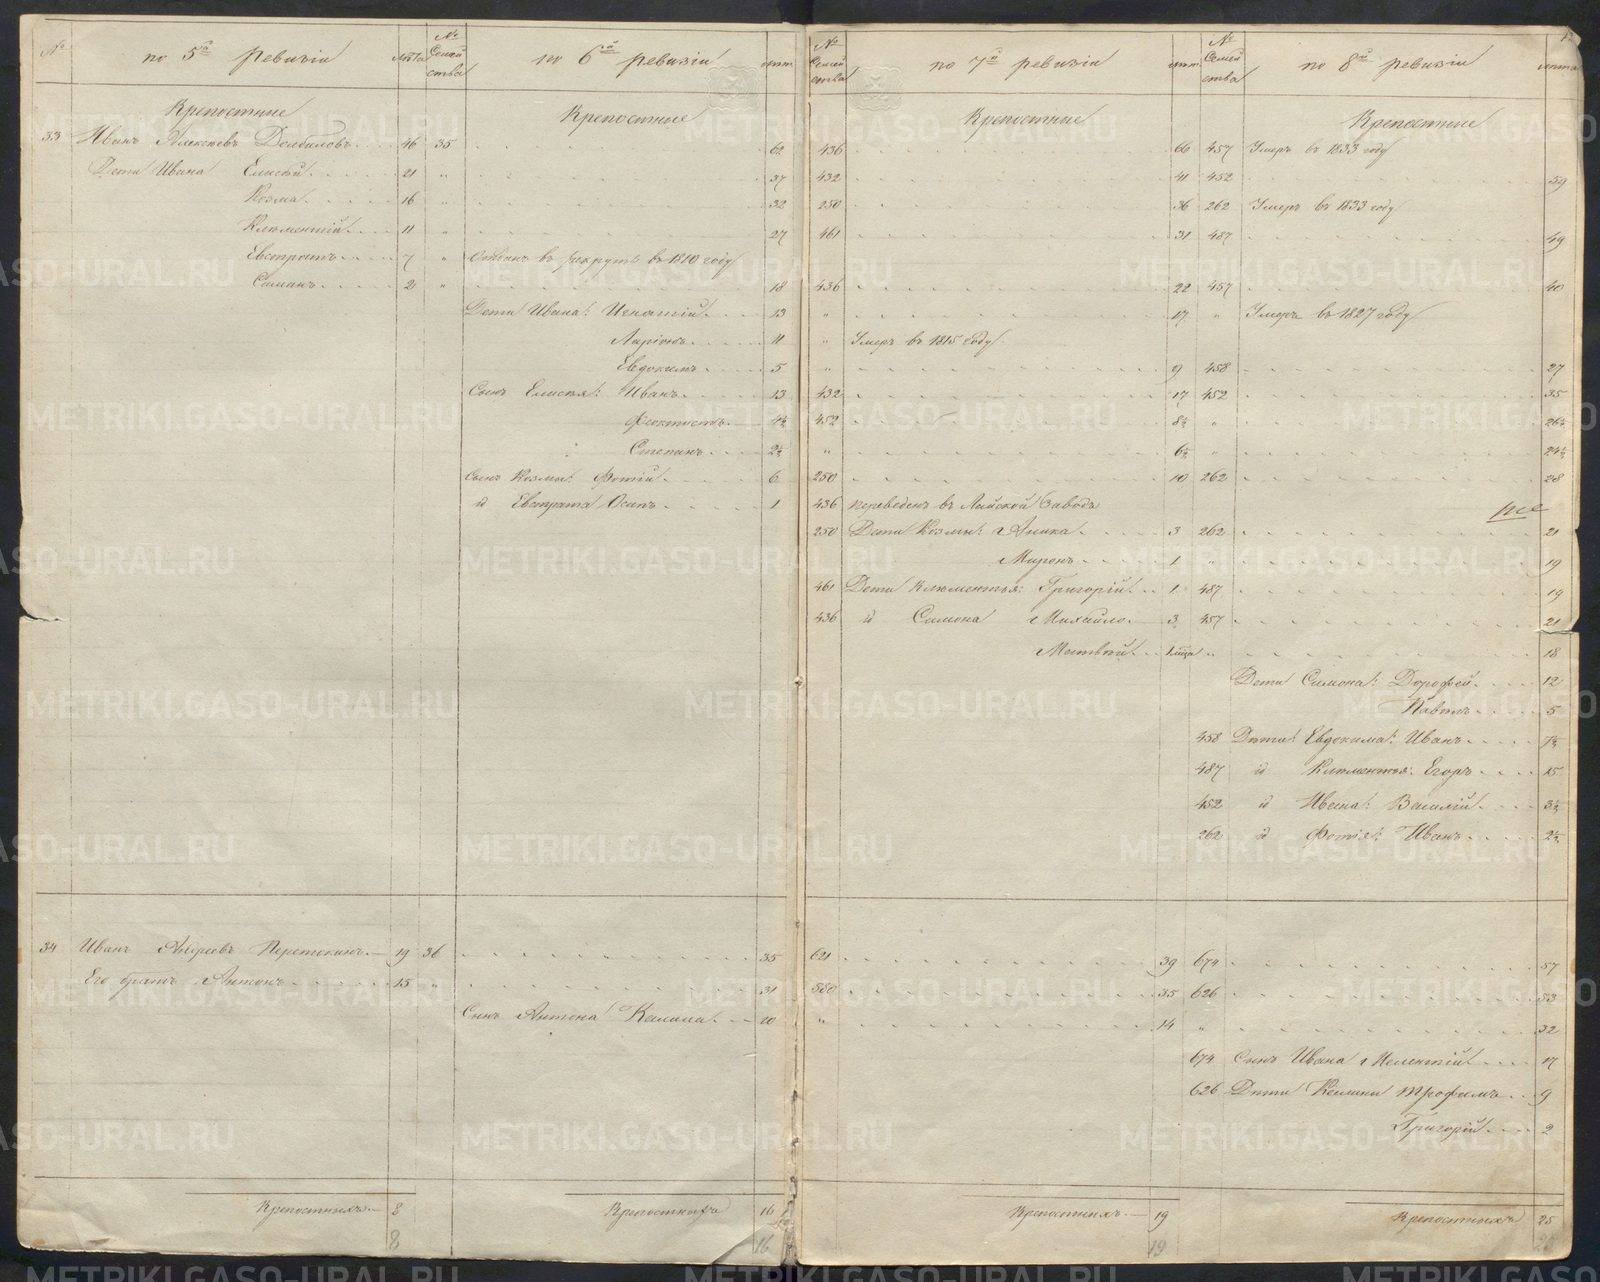 № по 5й ревизіи лѣта № Семейства по 6й ревизіи лѣта № Семейства по 7й ревизіи лѣта № Семейства по 8й ревизіи лѣта
Крепостные Крепостные Крепостные Крепостные
33 Иванъ Алексѣевъ 46 35 62 436 66 457 Умеръ въ 1833 году
Дети Ивана Елисѣй 21 „ 37 432 41 452 59
Козма 16 „ 32 250 36 262 Умеръ въ 1833 году
Клементій 11 „ 27 461 31 487 49
Евстратъ 7 „ Отданъ въ рекруты въ 1810 году
Симонъ 2 „ 18 436 22 457 40
Дети Ивана: Игнатій 13 „ 17 „ Умеръ въ 1827 году
Ларіонъ 11 „ Умеръ въ 1815 году
Евдокимъ 5 „ 9 458 27
Сынъ Елисѣя: Иванъ 13 432 17 452 35
Феоктистъ 4½ 452 8½ „ 26½
Степанъ 2½ „ 6½ „ 24½
Сынъ Козмы: Фотій 6 250 10 262 28
id Евстрата Осипъ 1 436 переведенъ въ Лайской Заводъ
250 Дети Козмы: Аника 3 262 21
Миронъ 1 „ 19
461 Дети Клементья: Григорій 1 487 19
436 id Симона Михайло 3 457 21
Матвѣй „ 18
Дети Симона: Дорофей 12
Павелъ 5
458 Дѣти Евдокима: Иванъ 7½
487 id Клементья: Егоръ 15
452 id Ивана: Василій 3½
262 id Фотія: Иванъ 2½
34 Иванъ Андреевъ 19 36 35 621 39 674 57
Его братъ Антонъ 15 „ 31 580 35 626 53
Сынъ Антона Калина 10 „ 14 „ 32
674 Сынъ Ивана 17
626 Дѣти Калины Трофимъ 9
Григорій 2
Крепостныхъ 8 Крепостныхъ 16 Крепостныхъ 19 Крепостныхъ 25
8 16 19
METRIKI.GASO-URAL.RU